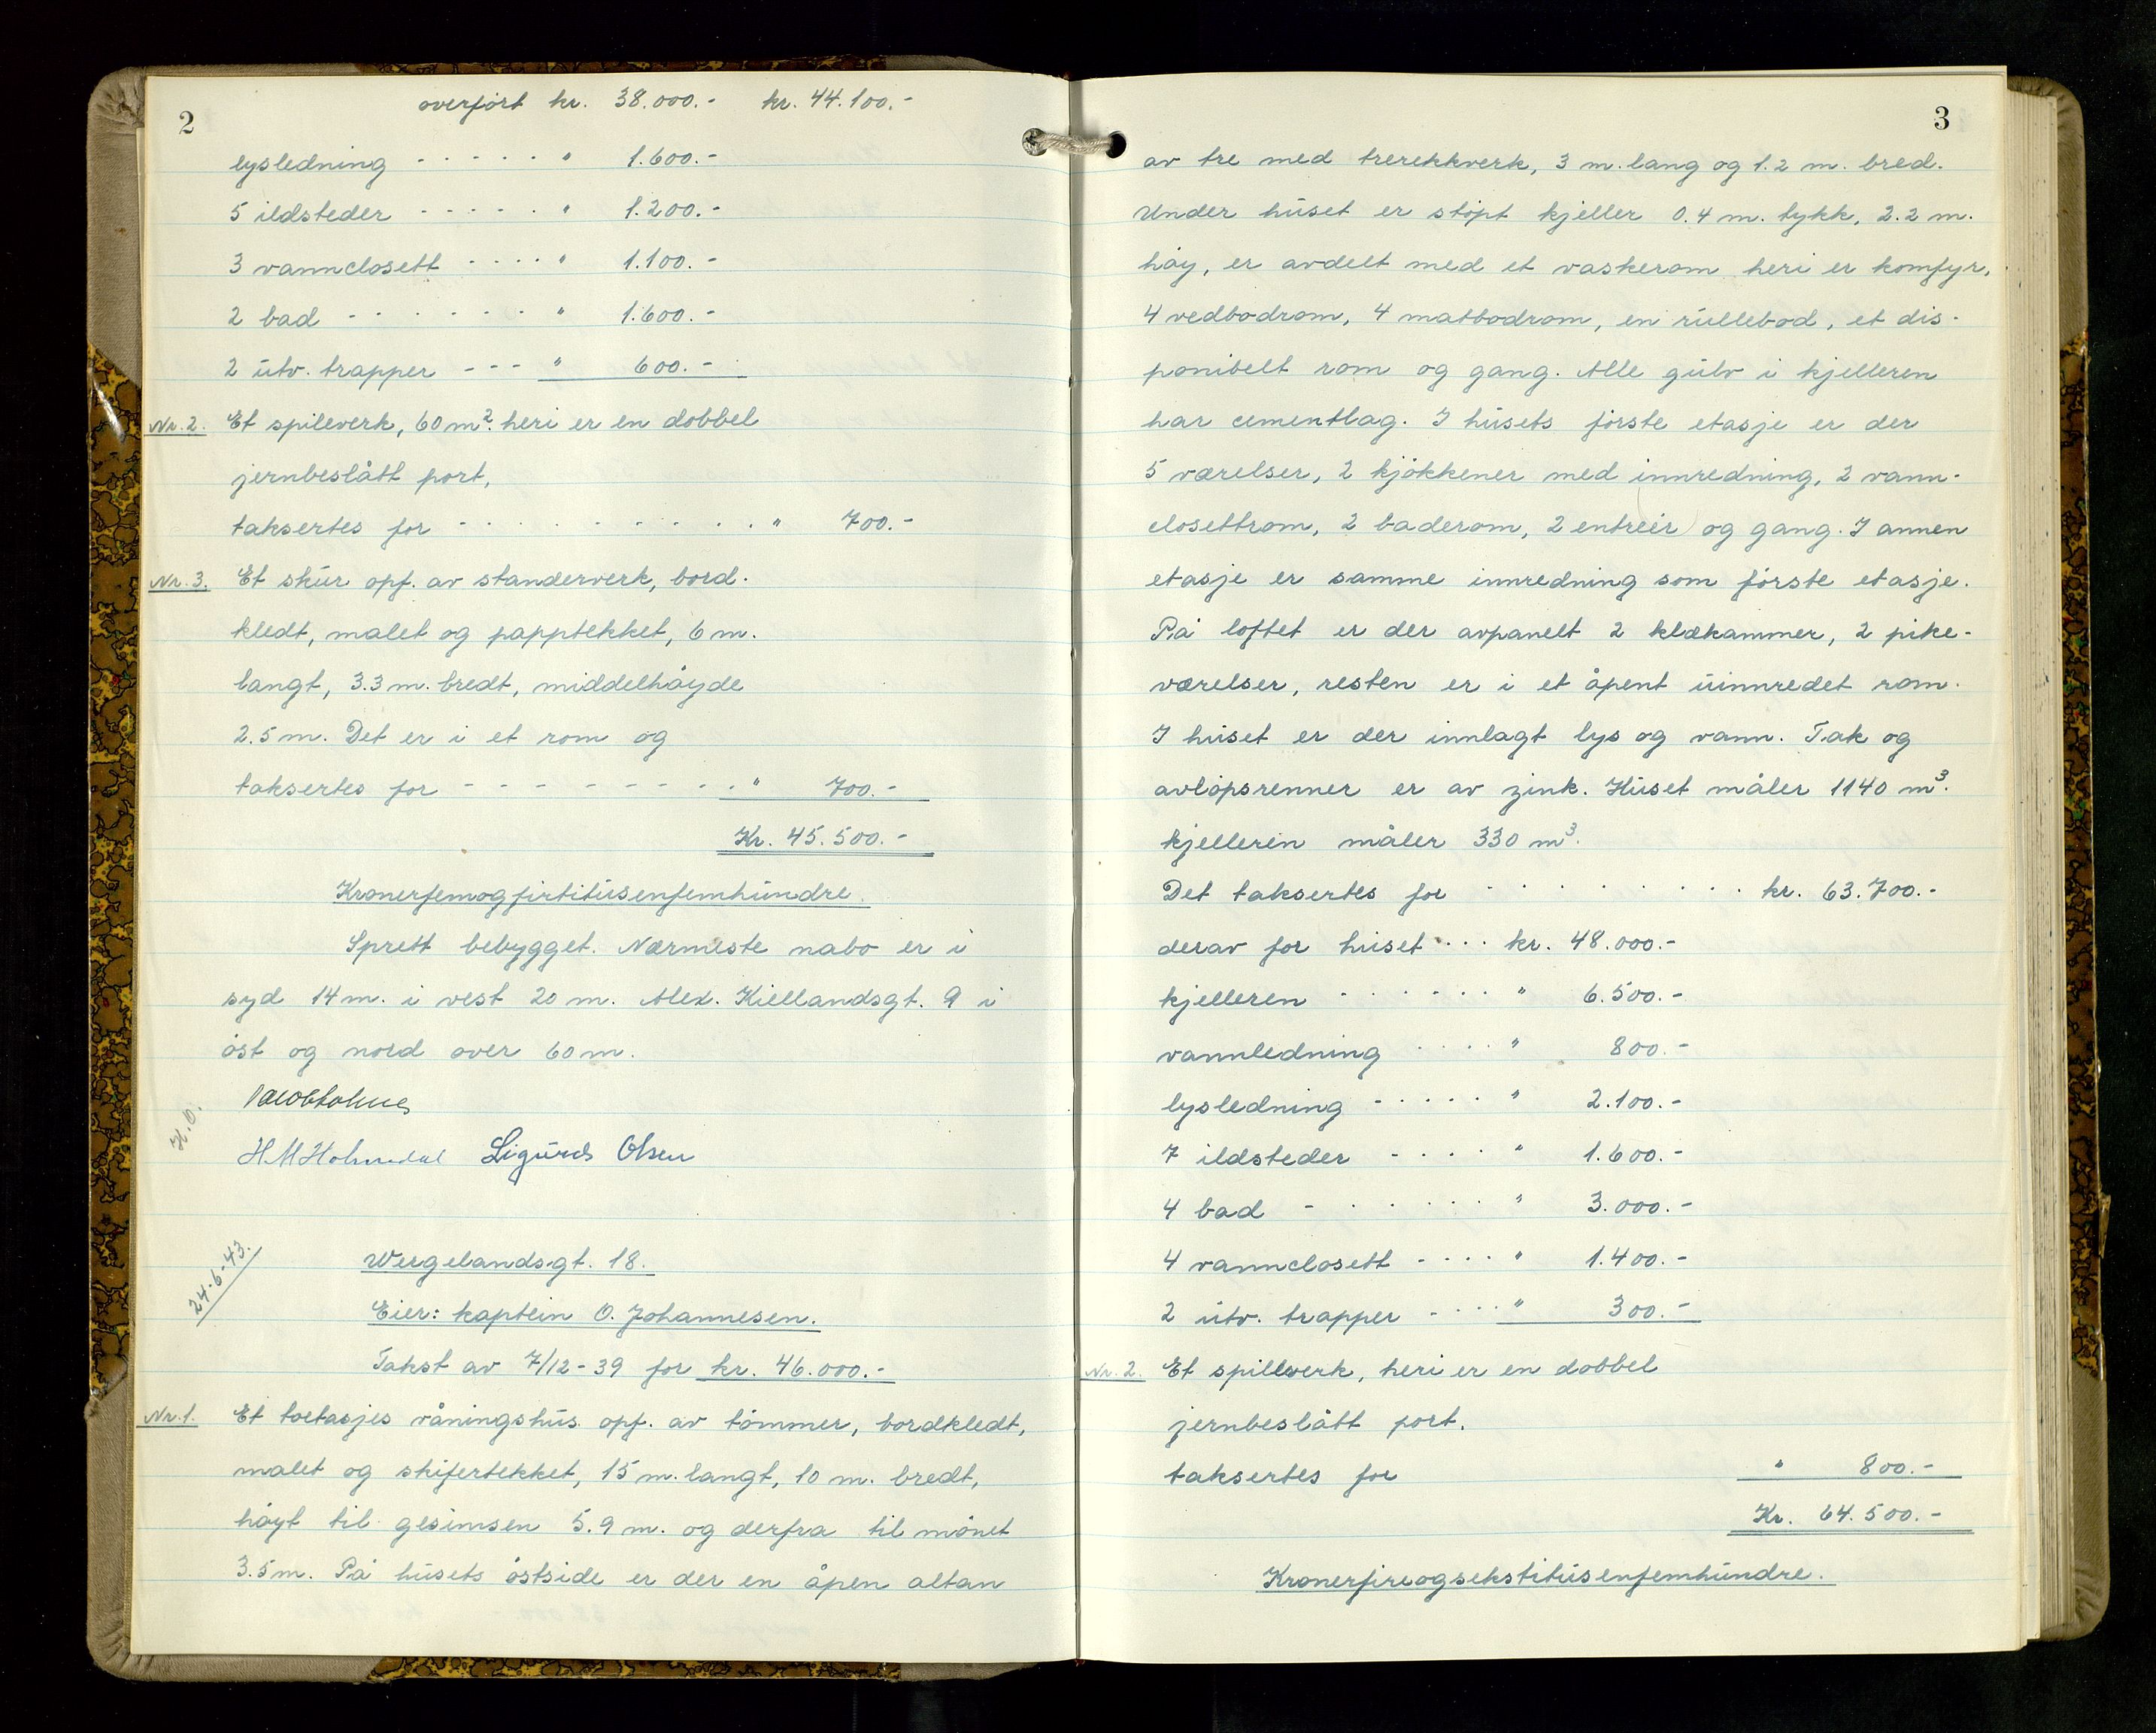 2
overført kr. 38.000.- kr. 44.100.-
lysledning - - - - - " 1.600.-
5 ildsteder - - - - - " 1.200.-
3 vannclosett - - - - " 1.100.-
2 bad - - - - - - " 1.600.-
2 utv. trapper - - - " 600.-
Nr. 2. Et spileverk, 60 m². heri er en dobbel
jernbeslått port,
taksertes for - - - - - - - - - - " 700.-
Nr. 3. Et skur opf. av standerverk, bord-
kledt, malet og papptekket, 6 m.
langt, 3.3 m. bredt, middelhøyde
2.5 m. Det er i et rom og
taksertes for - - - - - - - - - " 700.-
Kr. 45.500.-
Kronerfemogfirtitusenfemhundre.
Sprett bebygget. Nærmeste nabo er i
syd 14 m. i vest 20 m. Alex. Kiellandsgt. 9 i
øst og nord over 60 m.
H.O.
H M Holmedal Sigurd Olsen
24-6-43.
Wergelandsgt. 18.
Eier: kaptein O. Johannesen.
Takst av 7/12-39 for kr. 46.000.-
Nr. 1. Et toetasjes våningshus opf. av tømmer, bordkledt,
malet og skifertekket, 15 m. langt, 10 m. bredt,
høyt til gesimsen 5.9 m. og derfra til mønet
3.5 m. På husets østside er der en åpen altan
3
av tre med trerekkverk, 3 m. lang og 1.2 m. bred.
Under huset er støpt kjeller 0.4 m. tykk, 2.2 m.
høy, er avdelt med et vaskerom heri er komfyr,
4 vedbodrom, 4 matbodrom, en rullebod, et dis-
ponibelt rom og gang. Alle gulv i kjelleren
har cementlag. I husets første etasje er der
5 værelser, 2 kjøkkener med innredning, 2 vann-
closettrom, 2 baderom, 2 entreér og gang. I annen
etasje er samme innredning som første etasje.
På loftet er der avpanelt 2 klækammer, 2 pike-
værelser, resten er i et åpent uinnredet rom.
I huset er der innlagt lys og vann. Tak og
avløpsrenner er av zink. Huset måler 1140 m³.
kjelleren måler 330 m³.
Det taksertes for - - - - - - - - - kr. 63.700.-
derav for huset - - - kr. 48.000.-
kjelleren - - - - - - " 6.500.-
vannledning - - - - " 800.-
lysledning - - - - - " 2.100.-
7 ildsteder - - - - " 1.600.-
4 bad - - - - - - " 3.000.-
4 vannclosett - - - - " 1.400.-
2 utv. trapper - - - - " 300.-
Nr. 2. Et spillverk, heri er en dobbel
jernbeslått port.
taksertes for " 800.-
Kr. 64.500.-
Kronerfireogsekstitusenfemhundre.